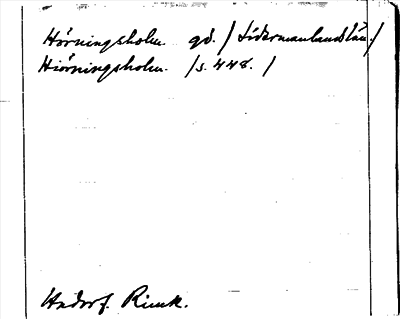 Hörningsholm gd. / Södermanlands län /
Hiörningsholm. / s. 448. /
Hadorf. Rimk.